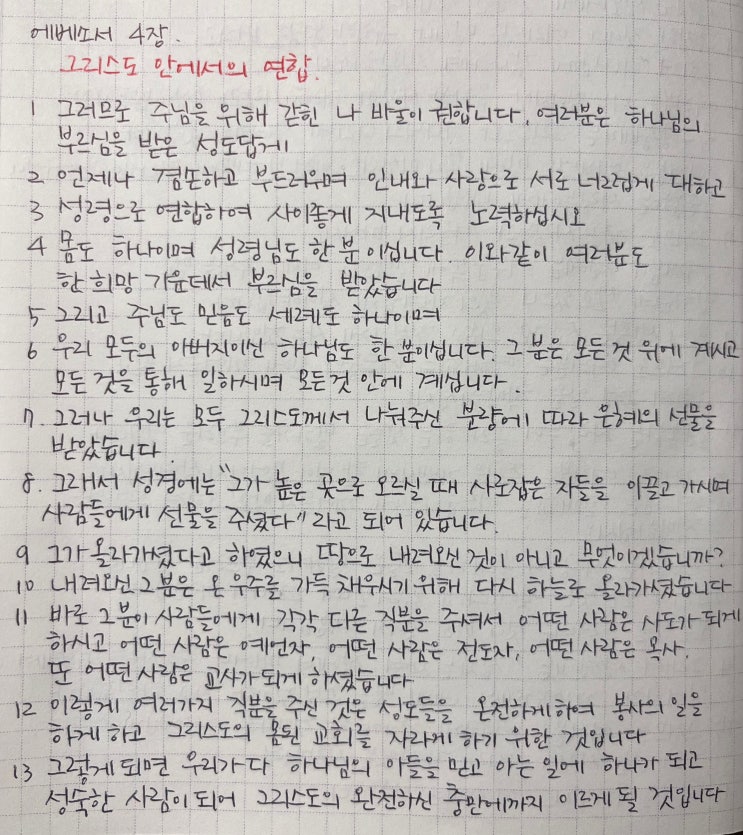 에베소서 4장.
그리스도 안에서의 연합.
1 그러므로 주님을 위해 갇힌 나 바울이 권합니다. 여러분은 하나님의
부르심을 받은 성도답게
2 언제나 겸손하고 부드러우며 인내와 사랑으로 서로 너그럽게 대하고
3 성령으로 연합하여 사이좋게 지내도록 노력하십시오
4 몸도 하나이며 성령님도 한 분이십니다. 이와같이 여러분도
한 희망 가운데서 부르심을 받았습니다
5 그리고 주님도 믿음도 세례도 하나이며
6 우리 모두의 아버지이신 하나님도 한 분이십니다. 그 분은 모든 것 위에 계시고
모든 것을 통해 일하시며 모든것 안에 계십니다.
7. 그러나 우리는 모두 그리스도께서 나눠주신 분량에 따라 은혜의 선물을
받았습니다.
8. 그래서 성경에는 "그가 높은 곳으로 오르실 때 사로잡은 자들을 이끌고 가시며
사람들에게 선물을 주셨다" 라고 되어 있습니다.
9 그가 올라가셨다고 하였으니 땅으로 내려오신 것이 아니고 무엇이겠습니까?
10 내려오신 그분은 온 우주를 가득 채우시기 위해 다시 하늘로 올라가셨습니다
11 바로 그분이 사람들에게 각각 다른 직분을 주셔서 어떤 사람은 사도가 되게
하시고 어떤 사람은 예언자, 어떤 사람은 전도자, 어떤 사람은 목사.
또 어떤 사람은 교사가 되게 하셨습니다
12 이렇게 여러가지 직분을 주신 것은 성도들을 온전하게 하여 봉사의 일을
하게 하고 그리스도의 몸된 교회를 자라게 하기 위한 것입니다
13 그렇게 되면 우리가 다 하나님의 아들을 믿고 아는 일에 하나가 되고
성숙한 사람이 되어 그리스도의 완전하신 충만에까지 이르게 될 것입니다